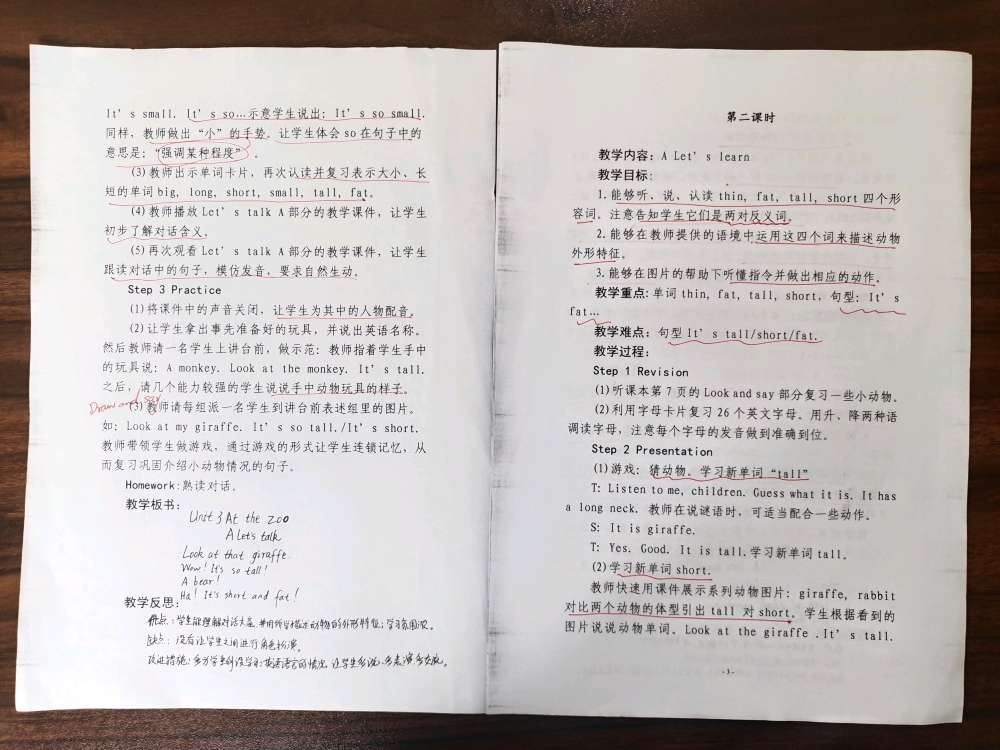 It's small. It's so…示意学生说出: It's so small.
同样, 教师做出“小”的手势. 让学生体会 so 在句子中的
意思是: “强调某种程度”.
(3) 教师出示单词卡片, 再次认读并复习表示大小、长
短的单词 big, long, short, small, tall, fat.
(4) 教师播放 Let's talk A 部分的教学课件, 让学生
初步了解对话含义.
(5) 再次观看 Let's talk A 部分的教学课件, 让学生
跟读对话中的句子, 模仿发音, 要求自然生动.
Step 3 Practice
(1) 将课件中的声音关闭, 让学生为其中的人物配音.
(2) 让学生拿出事先准备好的玩具, 并说出英语名称.
然后教师请一名学生上讲台前, 做示范: 教师指着学生手中
的玩具说: A monkey. Look at the monkey. It's tall.
之后, 请几个能力较强的学生说说手中动物玩具的样子.
Draw and say
(3) 教师请每组派一名学生到讲台前表述组里的图片.
如: Look at my giraffe. It's so tall./It's short.
教师带领学生做游戏, 通过游戏的形式让学生连锁记忆, 从
而复习巩固介绍小动物情况的句子.
Homework: 熟读对话.
教学板书:
Unit 3 At the zoo
A Let's talk
Look at that giraffe.
Wow! It's so tall!
A bear!
Ha! It's short and fat!
教学反思:
优点: 学生能理解对话大意, 并用所学描述动物的外形特征; 学习氛围浓.
缺点: 没有让学生之间进行角色扮演.
改进措施: 多为学生创设学习英语语言的情况, 让学生多说、多表演多交流.
第二课时
教学内容: A Let's learn
教学目标:
1. 能够听、说、认读 thin, fat, tall, short 四个形
容词. 注意告知学生它们是两对反义词.
2. 能够在教师提供的语境中运用这四个词来描述动物
外形特征.
3. 能够在图片的帮助下听懂指令并做出相应的动作.
教学重点: 单词 thin, fat, tall, short, 句型: It's
fat…
教学难点: 句型 It's tall/short/fat.
教学过程:
Step 1 Revision
(1) 听课本第 7 页的 Look and say 部分复习一些小动物.
(2) 利用字母卡片复习 26 个英文字母. 用升、降两种语
调读字母, 注意每个字母的发音做到准确到位.
Step 2 Presentation
(1) 游戏: 猜动物. 学习新单词“tall”
T: Listen to me, children. Guess what it is. It has
a long neck. 教师在说谜语时, 可适当配合一些动作.
S: It is giraffe.
T: Yes. Good. It is tall. 学习新单词 tall.
(2) 学习新单词 short.
教师快速用课件展示系列动物图片: giraffe, rabbit
对比两个动物的体型引出 tall 对 short. 学生根据看到的
图片说说动物单词. Look at the giraffe .It's tall.
-3-